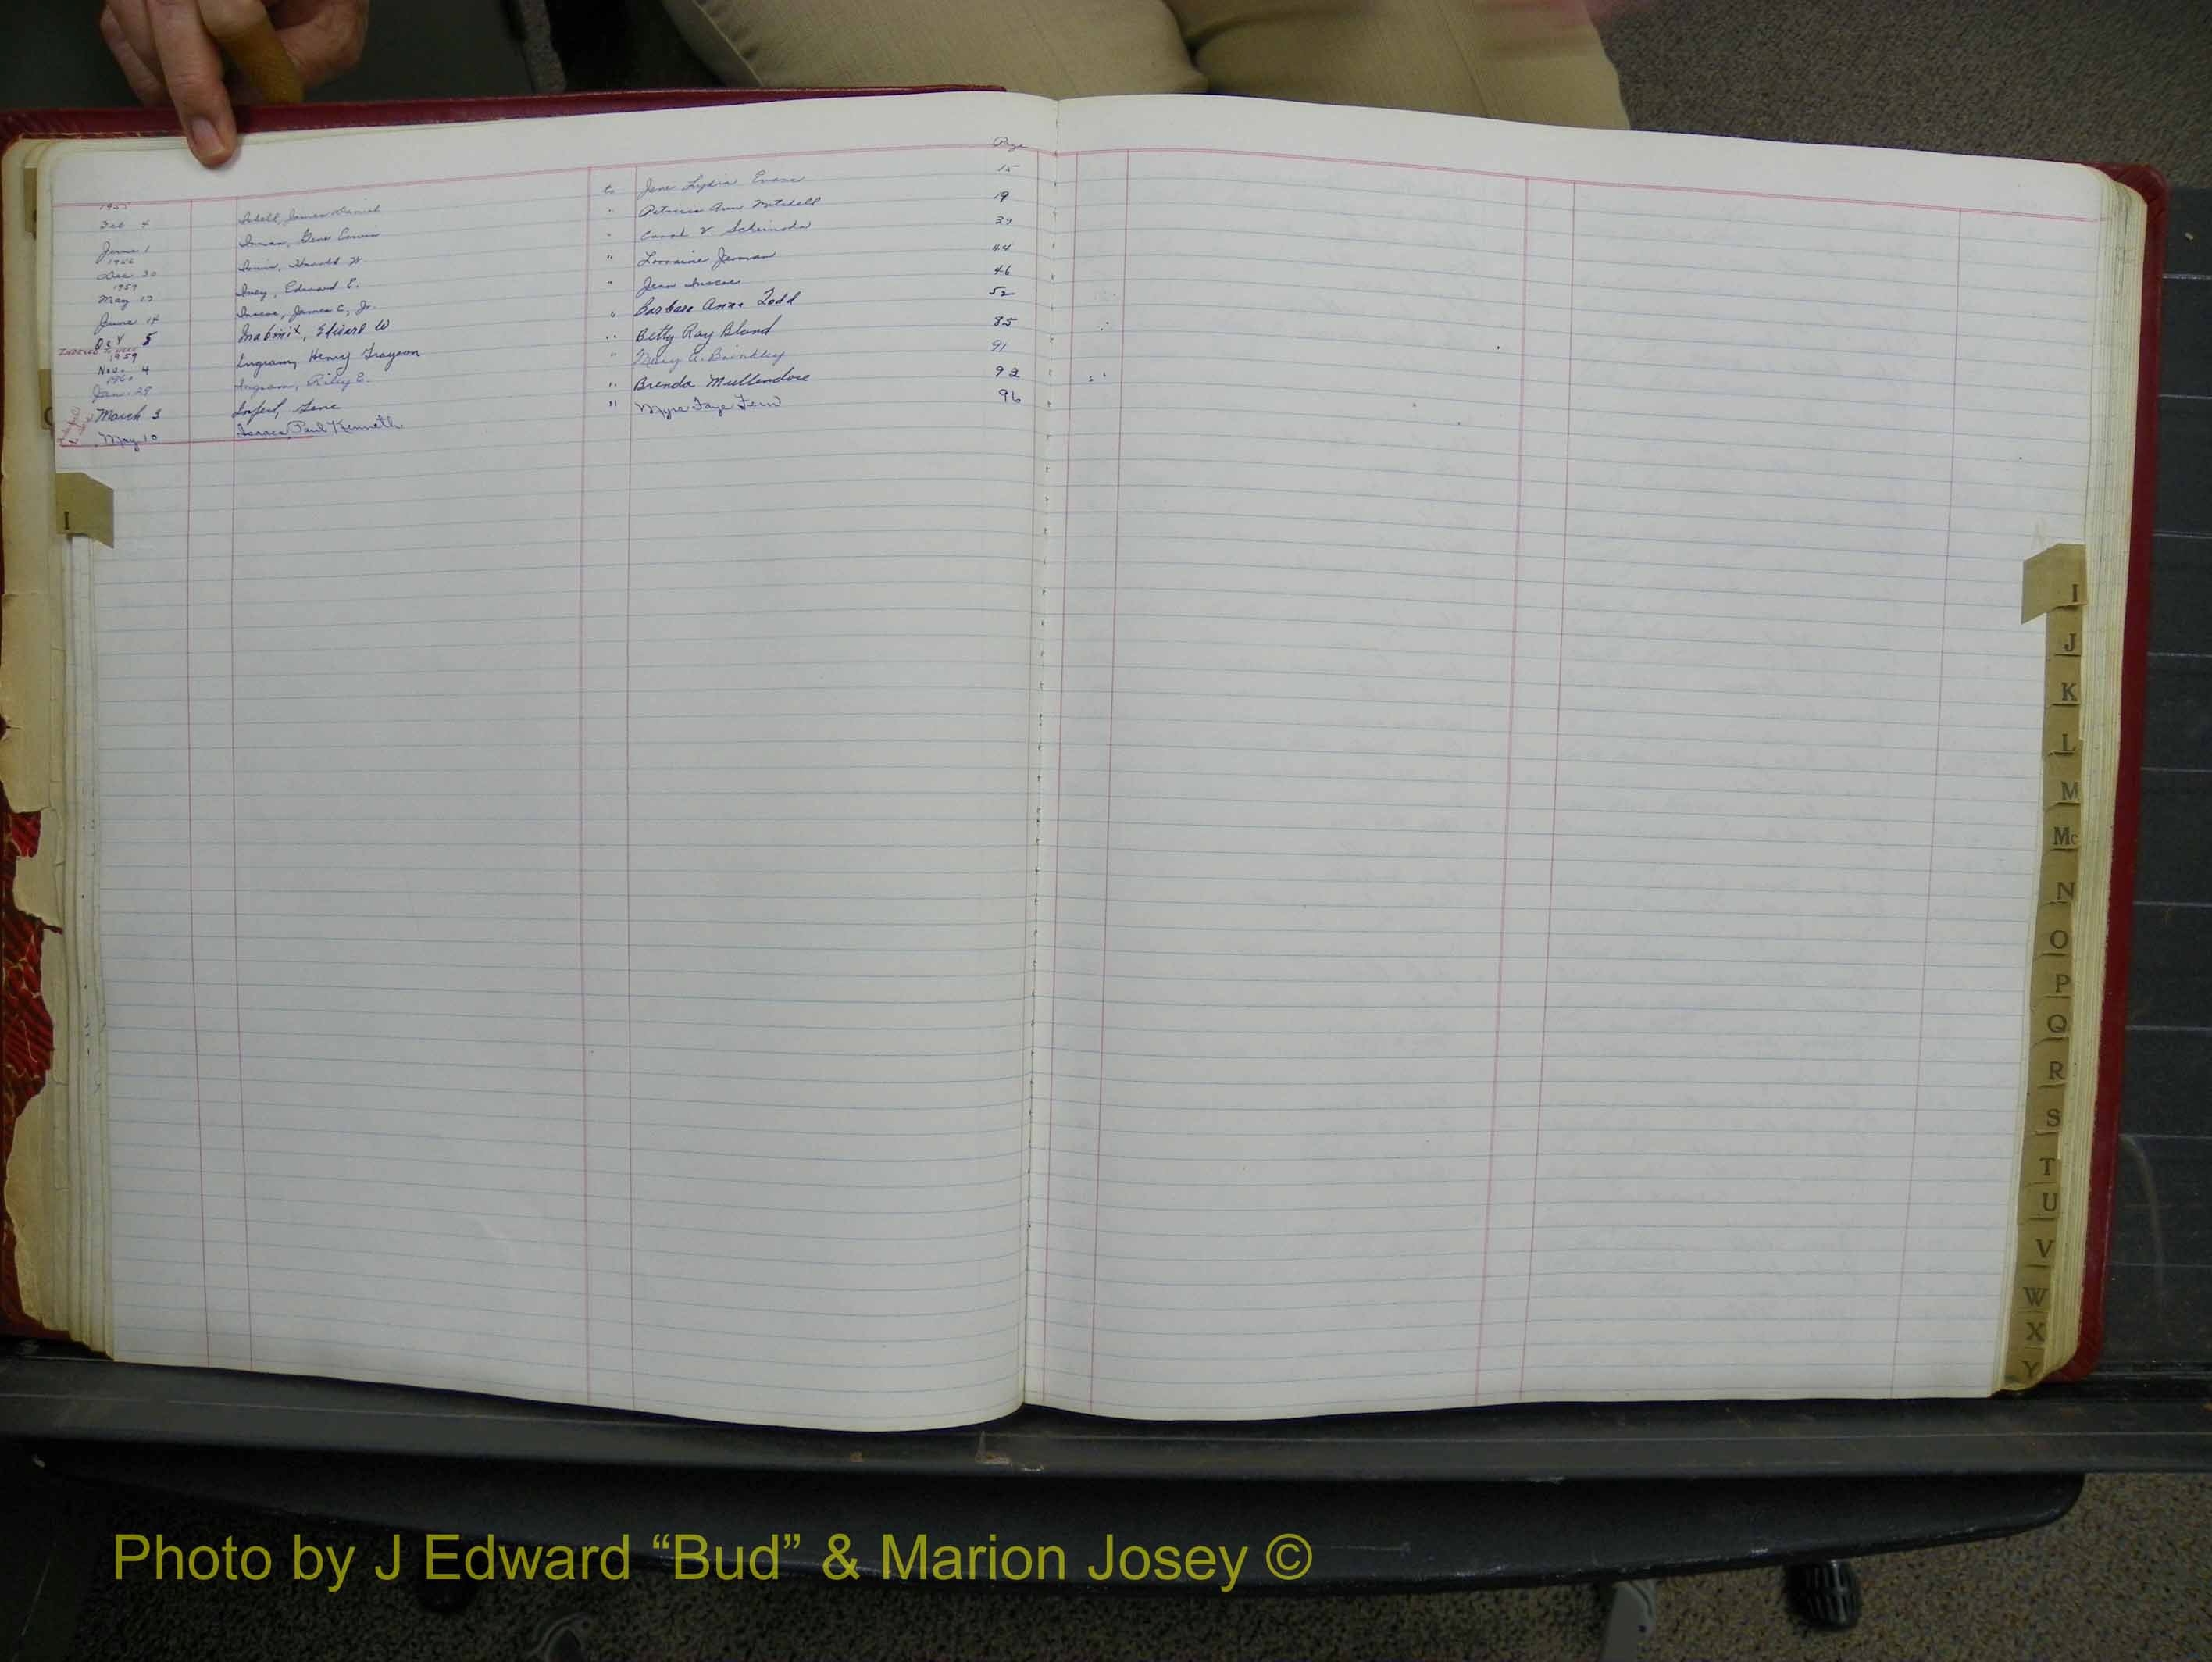 Page
1955
Feb 4 Isbell, James Daniel to Jane Lydia Evans 15
June 1 Inman, Gene Erwin " Patricia Ann Mitchell 19
1956
Dec 30 Harold W. " Carol V. 37
1957
May 17 Ivey, Edward E. " Lorraine Jerman 44
June 14 Inscoe, James C, Jr. " Jean Inscoe 46
Oct 5 Inabinit, Edward W " Barbara Anne Todd 52
INDEXED
1959
Nov. 4 Ingram, Henry Grayson " Betty Ray Bland 85
1960
Jan. 29 Ingram, Riley E. " Mary A. Brinkley 91
March 3 Gene " Brenda Mullendore 92
May 10 Isaacs, Paul Kenneth " Myra Faye Fern 96
I
I
J
K
L
M
Mc
N
O
P
Q
R
S
T
U
V
W
X
Y
Photo by J Edward “Bud” & Marion Josey ©